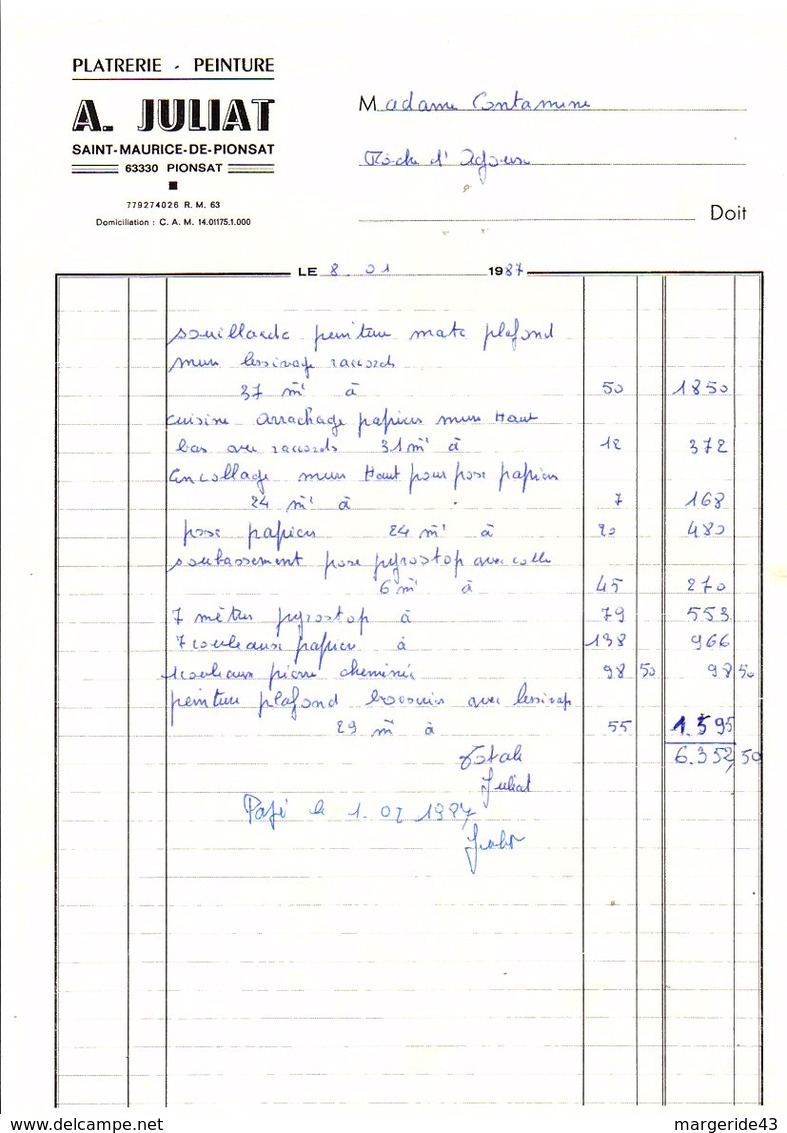 PLATRERIE - PEINTURE
A. JULIAT
SAINT-MAURICE-DE-PIONSAT
63330 PIONSAT
779274026 R. M. 63
Domiciliation : C. A. M. 14.01175.1.000
Madame Contamine
Roche d'Agoux
Doit
LE 8. 01 1987
souillarde peinture mate plafond
murs lessivage raccords
37 m² à 50 1850
cuisine arrachage papiers murs Haut
bas avec raccords 31 m² à 12 372
Encollage murs Haut pour pose papiers
24 m² à 7 168
pose papiers 24 m² à 20 480
soubassement pose pyrostop avec colle
6 m² à 45 270
7 mètres pyrostop à 79 553
7 rouleaux papier à 138 966
1 rouleaux pierre cheminée 98 50 98 50
peinture plafond avec lessivage
29 m² à 55 1.595
Total 6.352,50
Juliat
Payé le 1. 02 1987
delcampe.net
margeride43